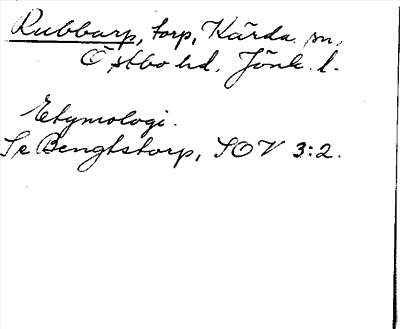 Rubbarp, torp, Kärda sn,
Östbo hd, Jönk. l.
Etymologi.
Se Bengtstorp, SOV 3:2.